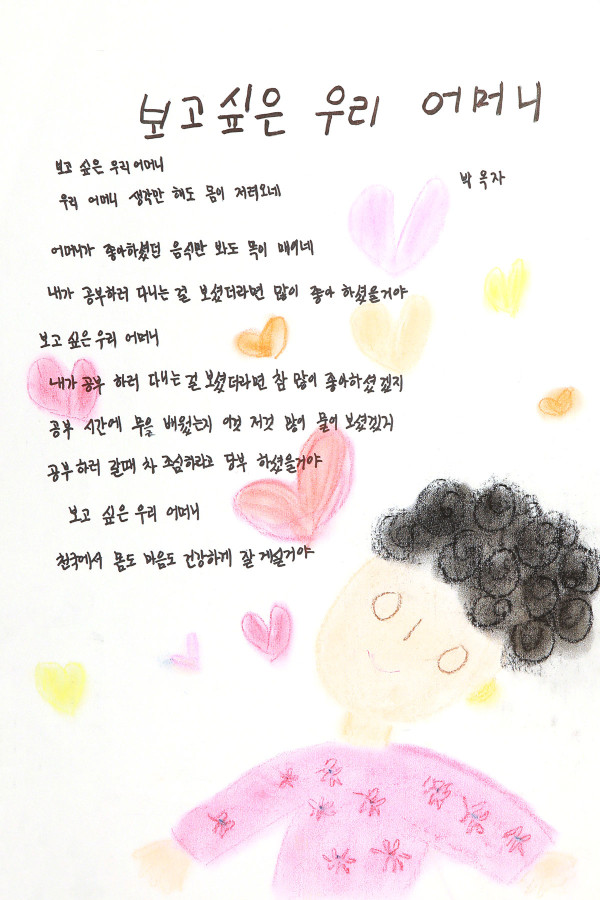 보고싶은 우리 어머니
박옥자
보고 싶은 우리 어머니
우리 어머니 생각만 해도 몸이 저려오네
어머니가 좋아하셨던 음식만 봐도 목이 매이네
내가 공부하러 다니는 걸 보셨더라면 많이 좋아 하셨을거야
보고 싶은 우리 어머니
내가 공부 하러 다니는 걸 보셨더라면 참 많이 좋아하셨겠지
공부 시간에 무을 배웠는지 이것 저것 많이 물어 보셨겠지
공부하러 갈때 차 조심하라고 당부 하셨을거야
보고 싶은 우리 어머니
천국에서 몸도 마음도 건강하게 잘 계실거야